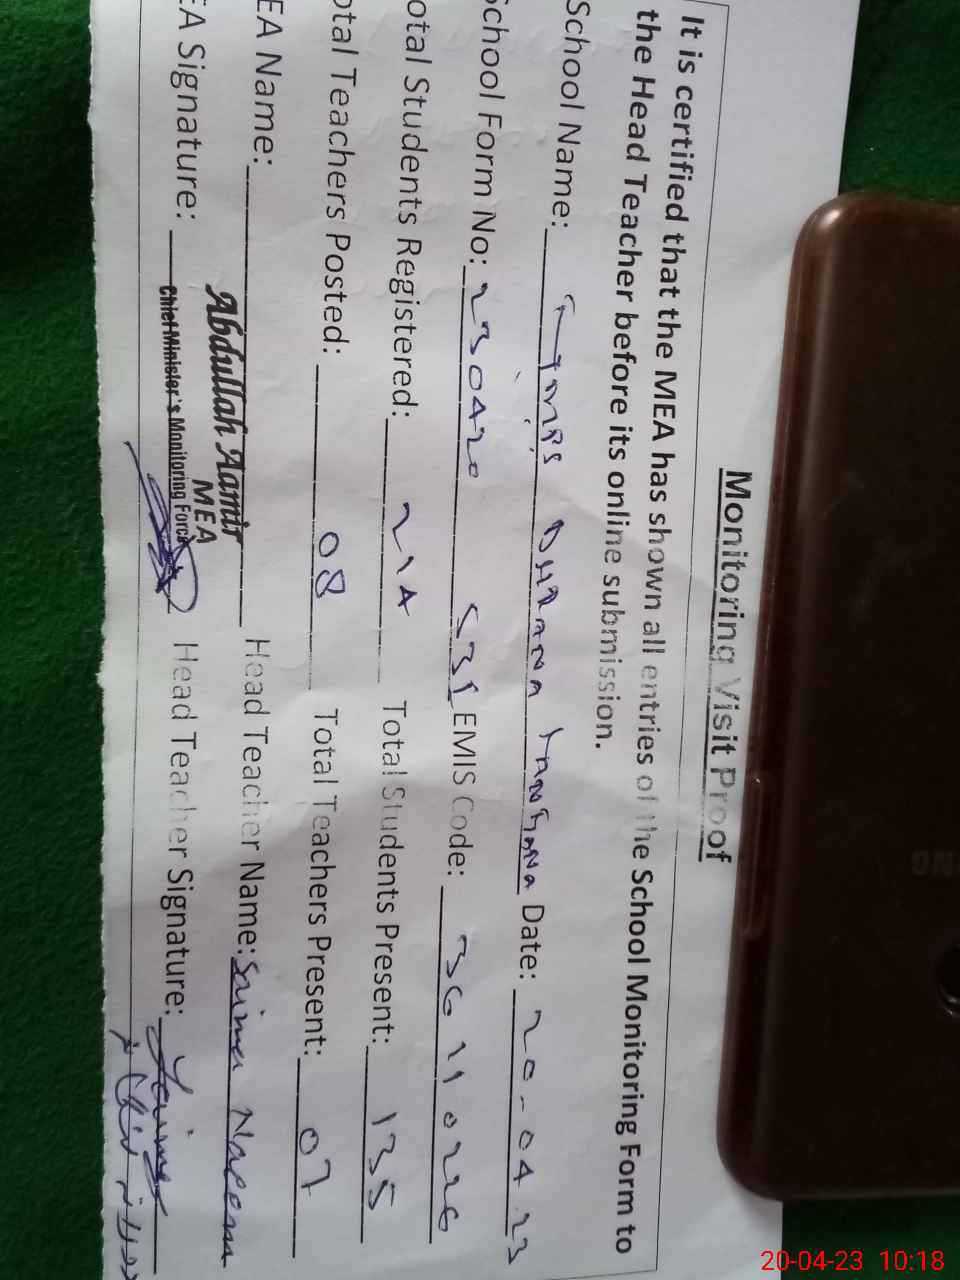 Monitoring Visit Proof
It is certified that the MEA has shown all entries of the School Monitoring Form to
the Head Teacher before its online submission.
School Name: GGMPS Date: 20-04-23
School Form No: 230420 EMIS Code: 36110226
otal Students Registered: 214 Total Students Present: 135
otal Teachers Posted: 08 Total Teachers Present: 07
EA Name: Abdullah Aamir Head Teacher Name: Saima Naeem
MEA
EA Signature: Chief Minister's Monitoring Force Head Teacher Signature:
20-04-23 10:18